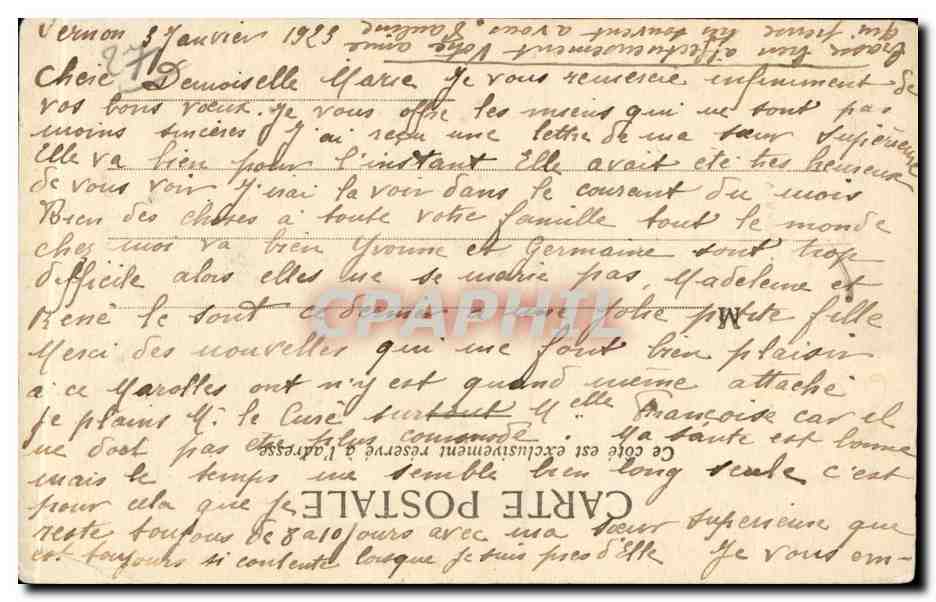 Vernon 3 Janvier 1923
27
Chere Demoiselle Marie Je vous remercie infiniment de
vos bons voeux. Je vous offre les miens qui ne sont pas
moins sincères J'ai reçu une lettre de ma sœur Supérieure
Elle va bien pour l'instant Elle avait été très heureuse
de vous voir J'irai la voir dans le courant du mois
Bien des choses à toute votre famille tout le monde
chez moi va bien Yvonne et Germaine sont trop
difficile alors elles ne se marie pas, Madeleine et
René le sont ce dernier a une jolie petite fille
Merci des nouvelles qui me font bien plaisir
à ce Marolles on n'y est quand même attaché
Je plains Mr le Curé surtout Melle Françoise car il
ne doit pas être plus commode. Ma santé est bonne
mais le temps me semble bien long seule c'est
pour cela que je
reste toujours de 8 a 10 jours avec ma sœur Superieuse que
est toujours si contente lorsque je suis pres d'Elle Je vous em-
brasse bien affectueusement Votre amie
qui pense très souvent a vous. Pauline
M
Ce côté est exclusivement réservé à l'adresse
CARTE POSTALE
CPAPHIL